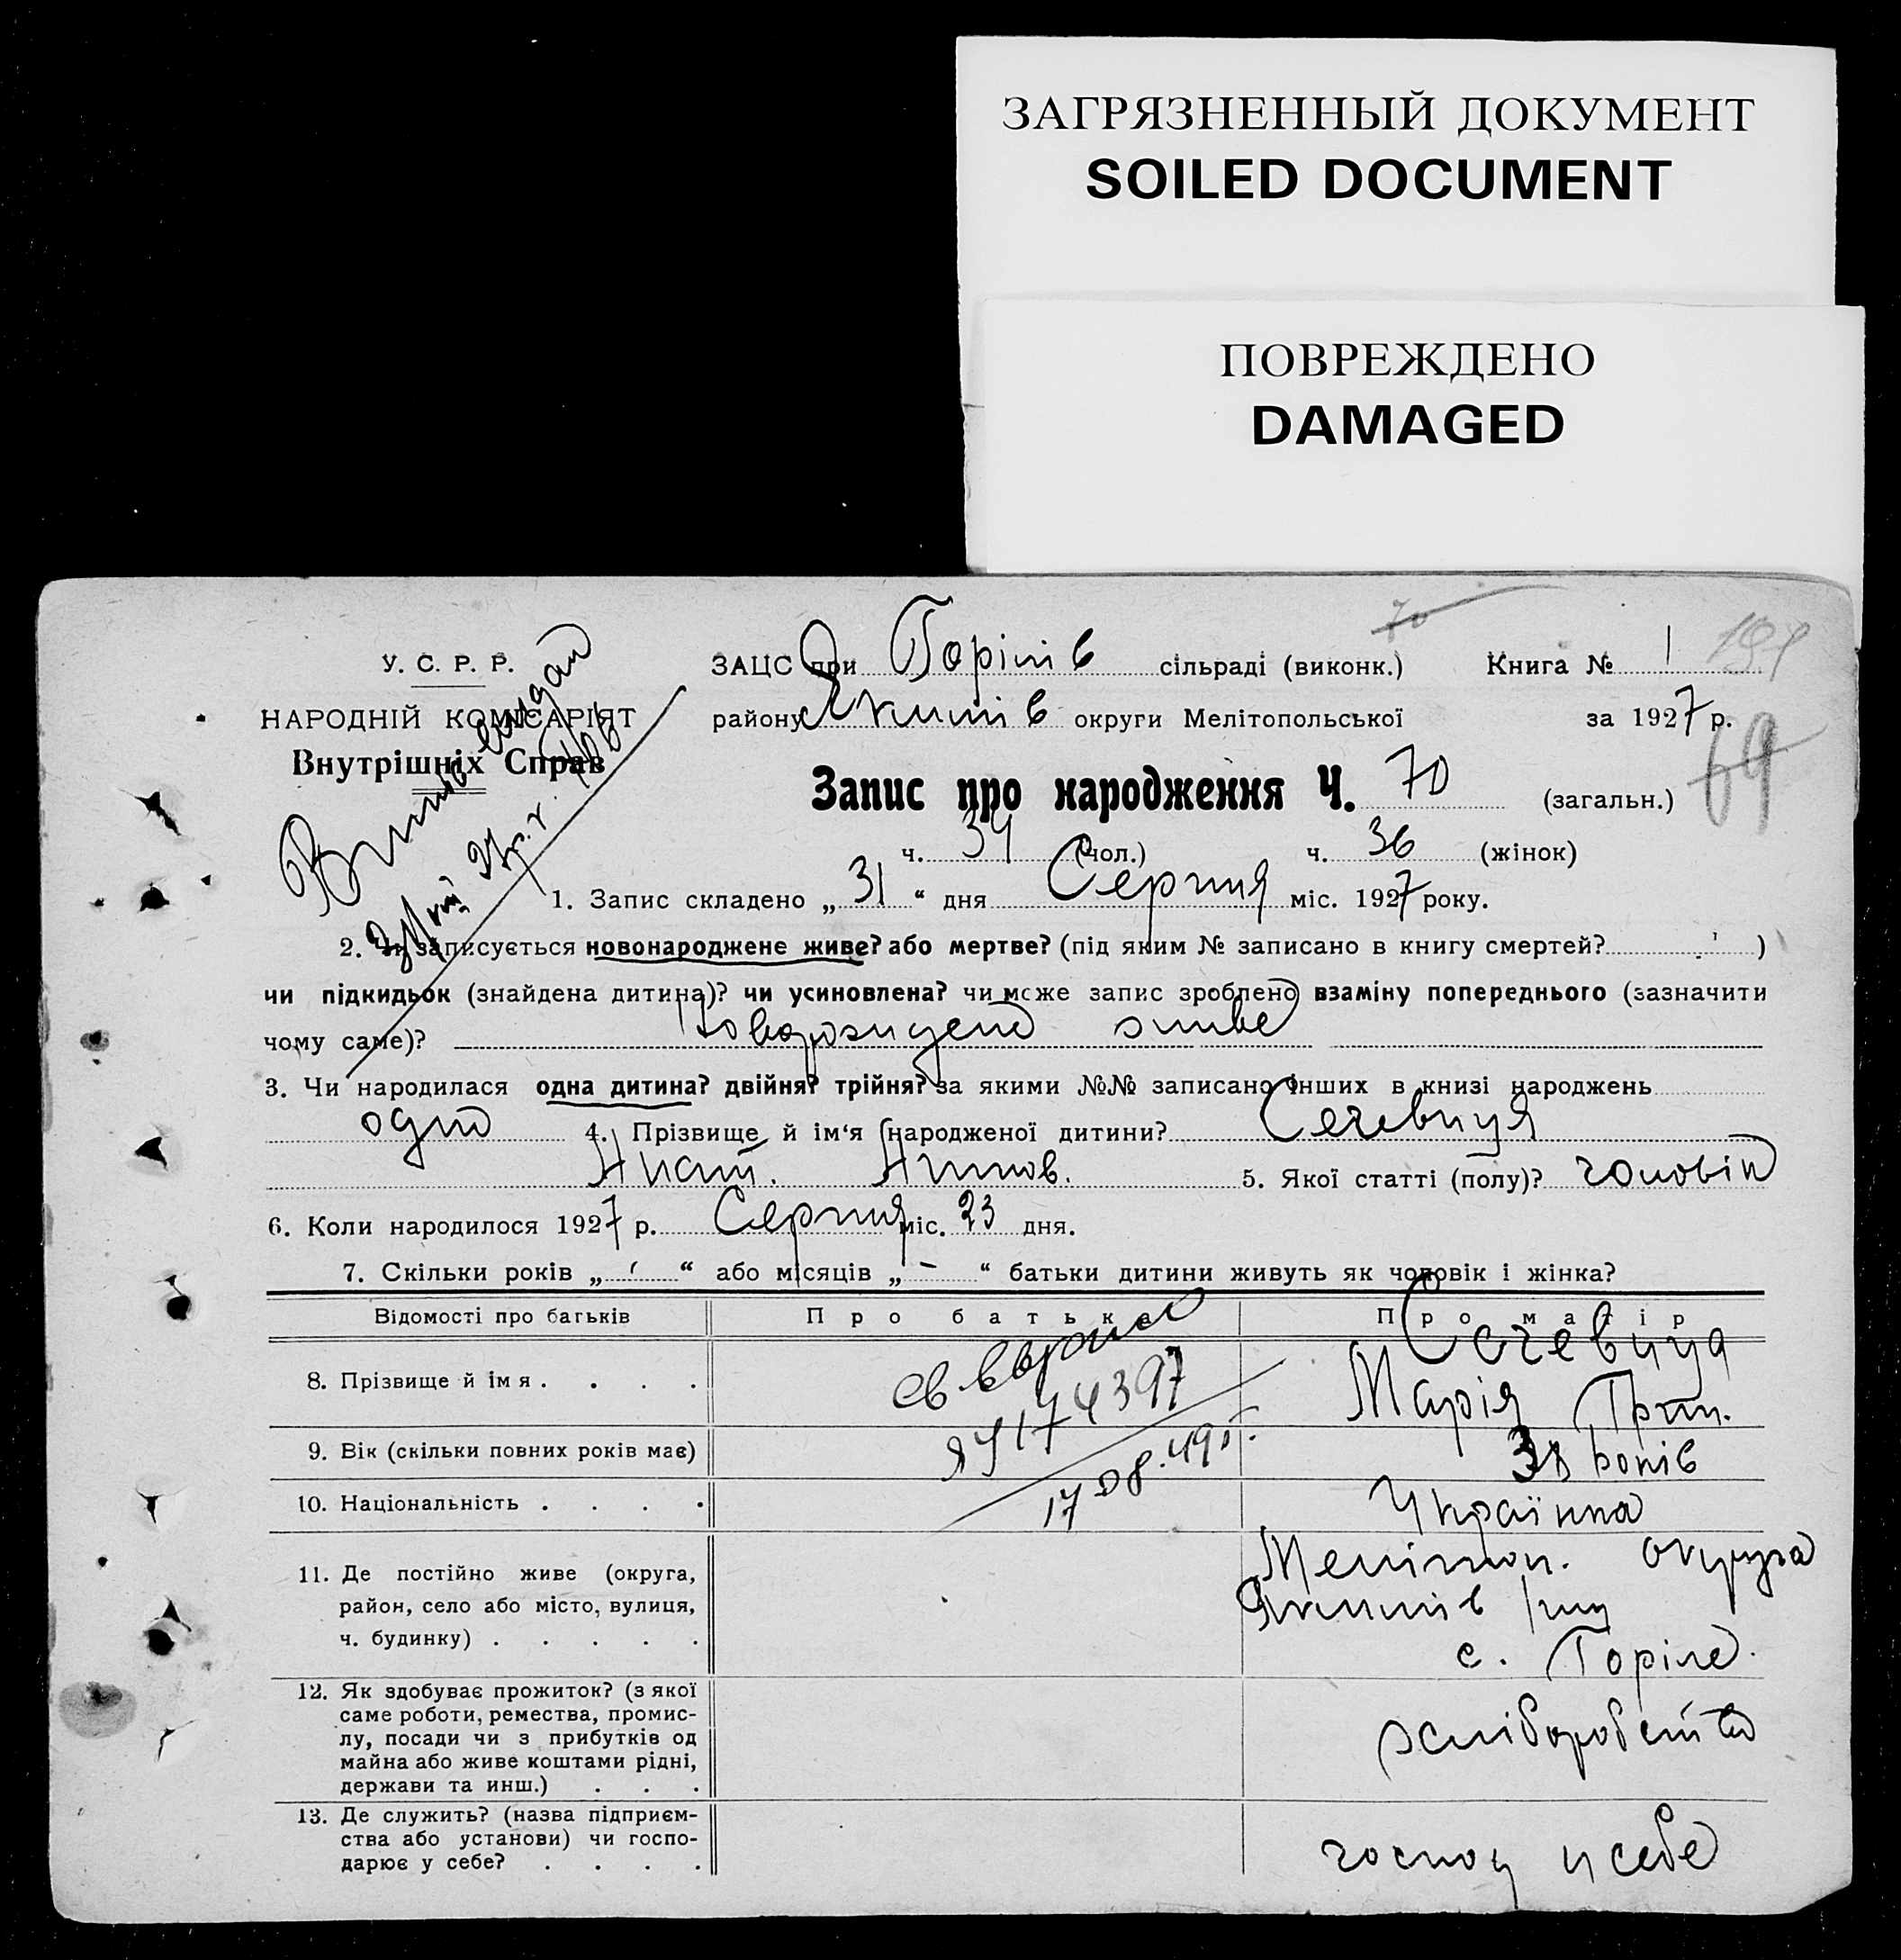 ЗАГРЯЗНЕННЫЙ ДОКУМЕНТ
SOILED DOCUMENT
ПОВРЕЖДЕНО
DAMAGED
70
У. С. Р. Р.
ЗАЦС при Горілів сільраді (виконк.)
Книга № 1
НАРОДНІЙ КОМІСАРІЯТ
району Якимів округи Мелітопольської
за 1927 р.
Внутрішніх Справ
69
Запис про народження Ч. 70 (загальн.)
ч. 34 (чол.) ч. 36 (жінок)
1. Запис складено „ 31 “ дня Серпня міс. 1927 року.
2. Чи записується новонароджене живе? або мертве? (під яким № записано в книгу смертей? )
чи підкидьок (знайдена дитина)? чи усиновлена? чи може запис зроблено взаміну попереднього (зазначити
чому саме)? живе
3. Чи народилася одна дитина? двійня? трійня? за якими №№ записано інших в книзі народжень
одно 4. Прізвище й ім‘я народженої дитини? Сечевиця
5. Якої статті (полу)? чоловік
6. Коли народилося 1927 р. Серпня міс. 23 дня.
7. Скільки років „ “ або місяців „ - “ батьки дитини живуть як чоловік і жінка?
Відомості про батьків
Про батька
Про матір
8. Прізвище й імя . . . .
Сечевиця
Марія Григ.
9. Вік (скільки повних років має)
38 років
17 08.49 г.
10. Національність . . . .
Українка
11. Де постійно живе (округа,
район, село або місто, вулиця,
ч. будинку) . . . . .
Мелітоп. округа
Якимів
с. Горіле.
12. Як здобуває прожиток? (з якої
саме роботи, ремества, промис-
лу, посади чи з прибутків од
майна або живе коштами рідні,
держави та инш.) . . .
хліборобство
13. Де служить? (назва підприєм-
ства або установи) чи госпо-
дарює у себе? . . . .
господ у себе